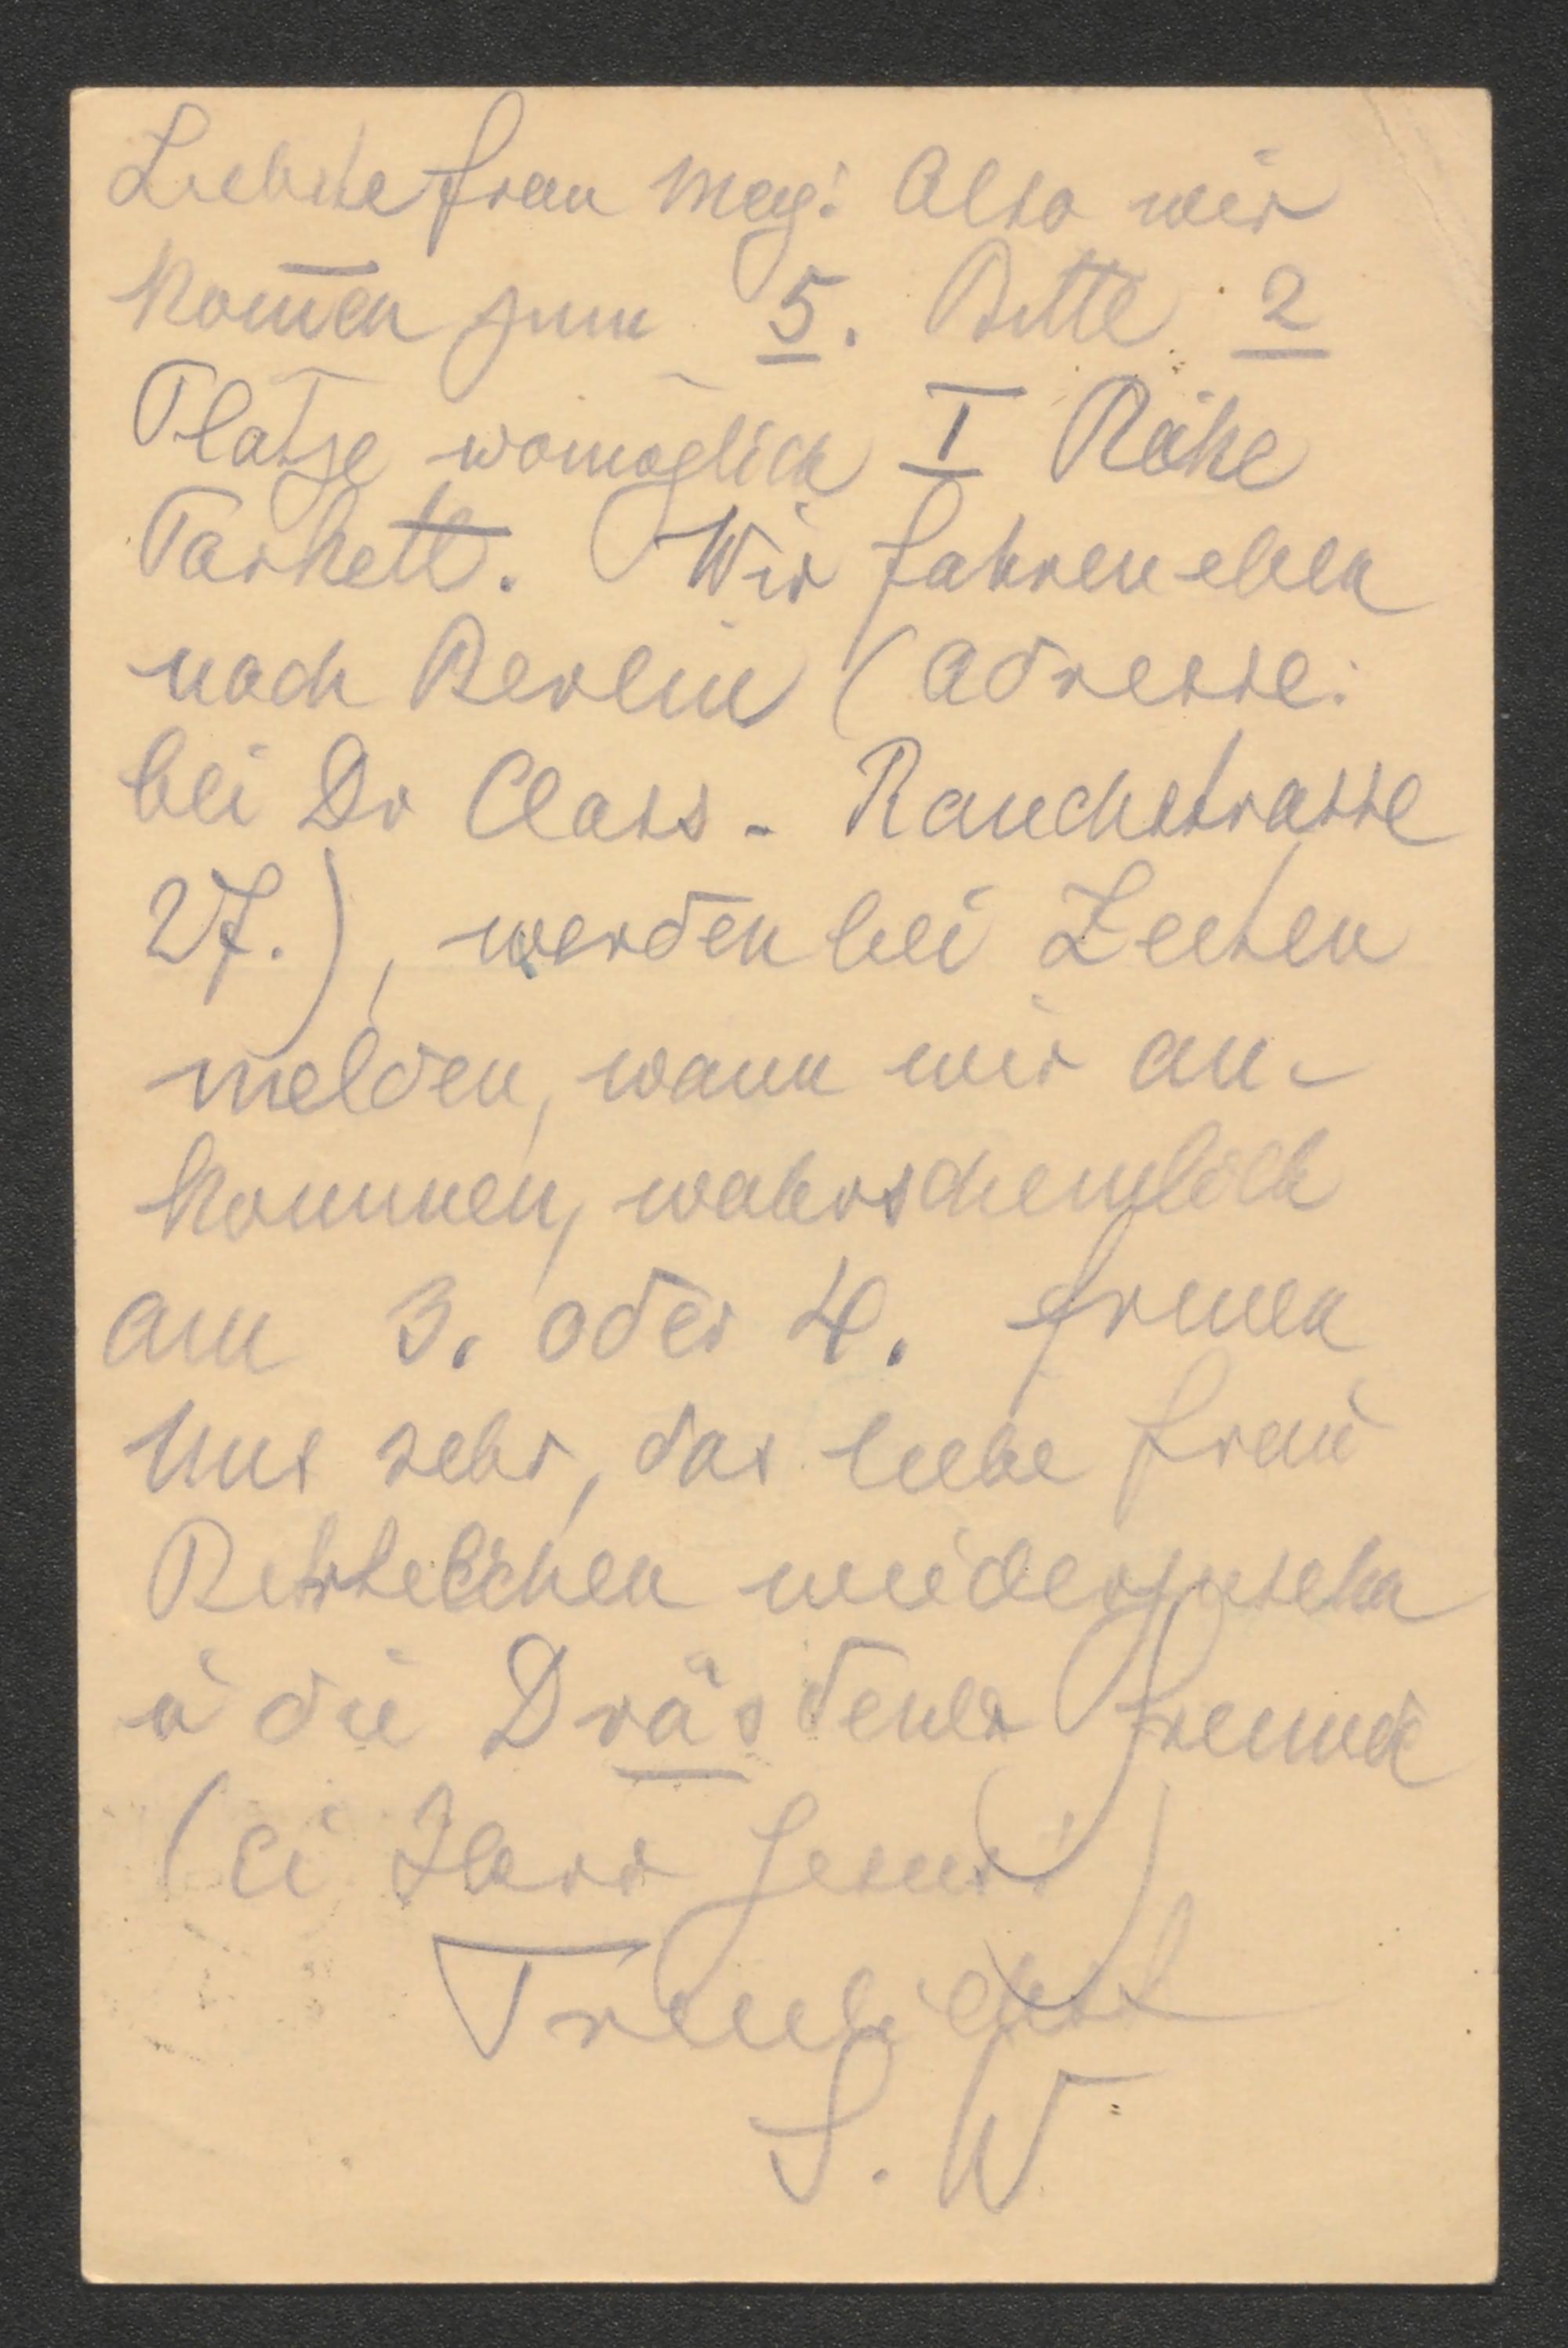 Liebste Frau May! Also wir
kom̅en zum 5. Bitte 2
Plätze womöglich I Reihe
Parkett. Wir fahren eben
nach Berlin (Adresse:
bei Dr Class - Rauchstrasse
27.), werden bei Zeiten
melden, wann wir an-
kommen, wahrscheinlich
am 3. oder 4. Freuen
uns sehr, das liebe Frau
wiederzusehn
u die Dräsdener Freunde
(ei Herr Jesus!)
Treulichst
S. W